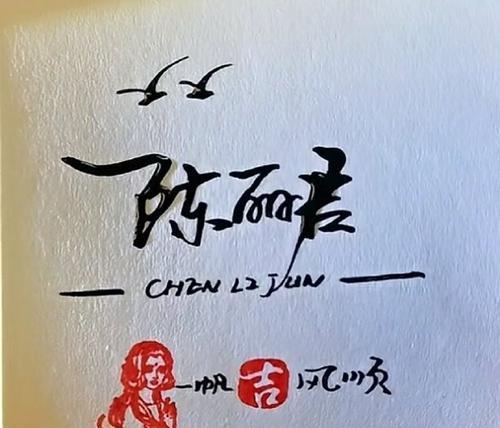 陈丽君
CHEN LI JUN
一帆吉风顺